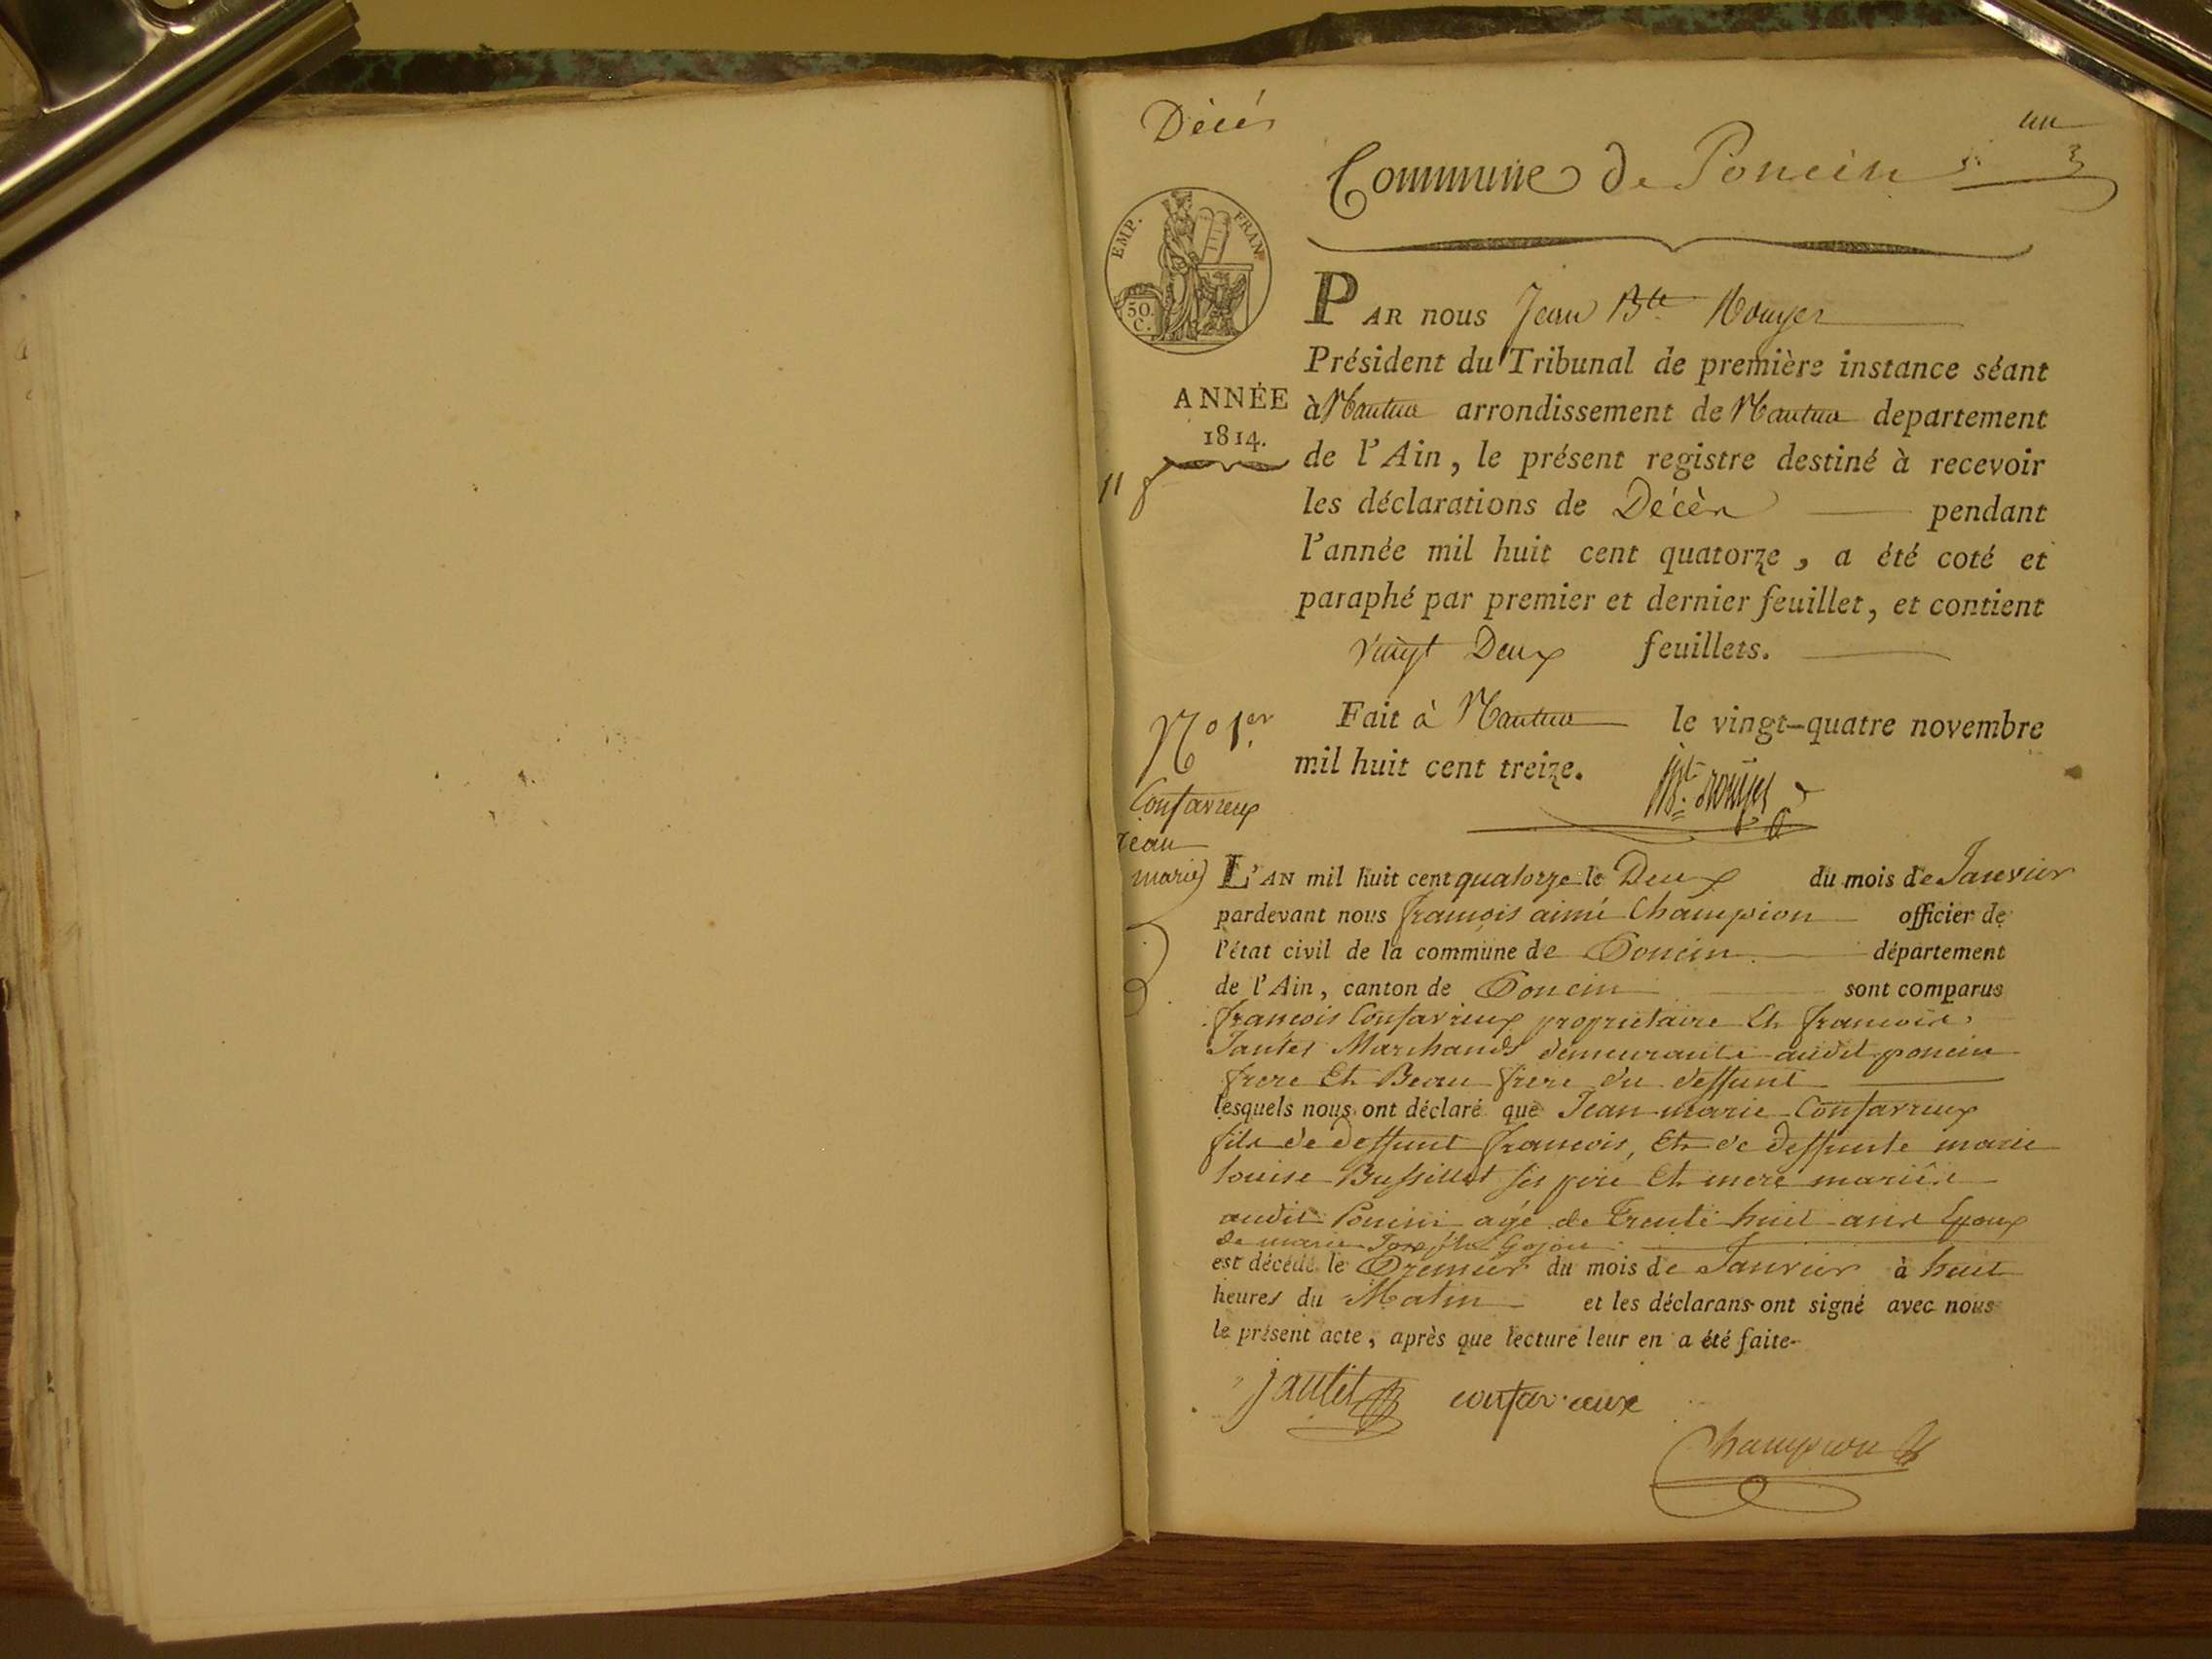 Décès
un
Commune de Poncin
EMP. FRAN
50.
C.
PAR nous Jean Bte Rouyer
Président du Tribunal de première instance séant
ANNÉE
1814.
à Nantua arrondissement de Nantua departement
de l'Ain, le présent registre destiné à recevoir
les déclarations de Décès pendant
l'année mil huit cent quatorze, a été coté et
paraphé par premier et dernier feuillet, et contient
vingt Deux feuillets.
Fait à Nantua le vingt-quatre novembre
mil huit cent treize.
Bte Rouyer
No 1er
Confavreux
Jean
marie
L'AN mil huit cent quatorze le Deux du mois de Janvier
pardevant nous françois aimé Champion officier de
l'état civil de la commune de Poncin département
de l'Ain, canton de Poncin sont comparus
françois Confavreux proprietaire Et francois
Jantet Marchands demeurants audit poncin
frere Et Beau frere du deffunt
lesquels nous ont déclaré que Jean marie Confavreux
fils de deffunt francois, Et de deffunte marie
louise Bussillet ses pere Et mere mariés
audit Poncin agé de trente huit ans Epoux
de marie Josephte Gojon
est décédé le Premier du mois de Janvier à huit
heures du Matin et les déclarans ont signé avec nous
le présent acte, après que lecture leur en a été faite
jantet confavreux
Champion